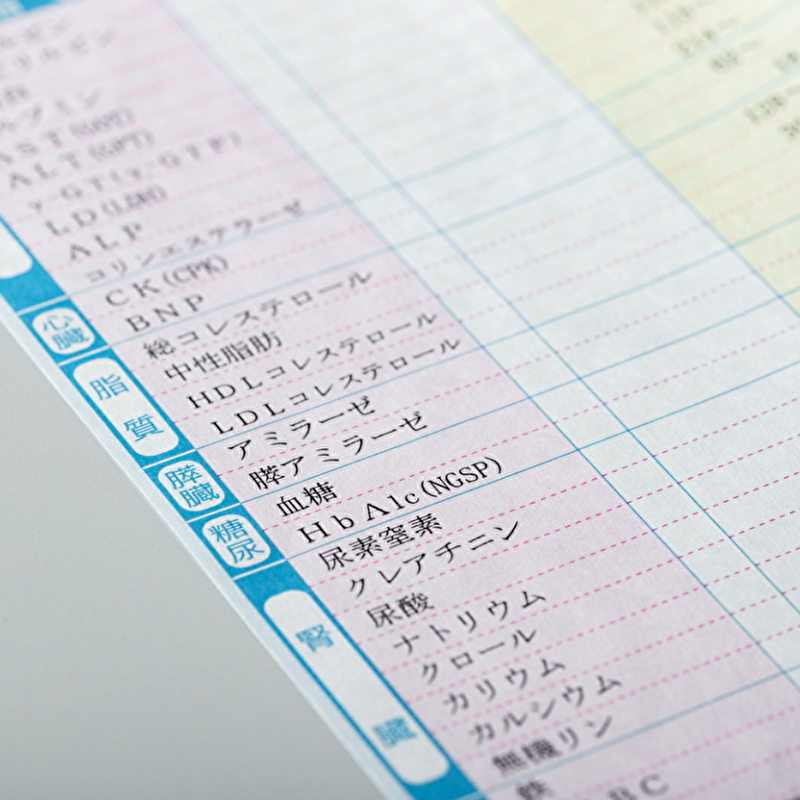 アルブミン
AST(GOT)
ALT(GPT)
γ-GT(γ-GTP)
LD(LDH)
ALP
コリンエステラーゼ
心臓
CK(CPK)
BNP
脂質
総コレステロール
中性脂肪
HDLコレステロール
LDLコレステロール
膵臓
アミラーゼ
膵アミラーゼ
糖尿
血糖
HbA1c(NGSP)
腎臓
尿素窒素
クレアチニン
尿酸
ナトリウム
クロール
カリウム
カルシウム
無機リン
鉄